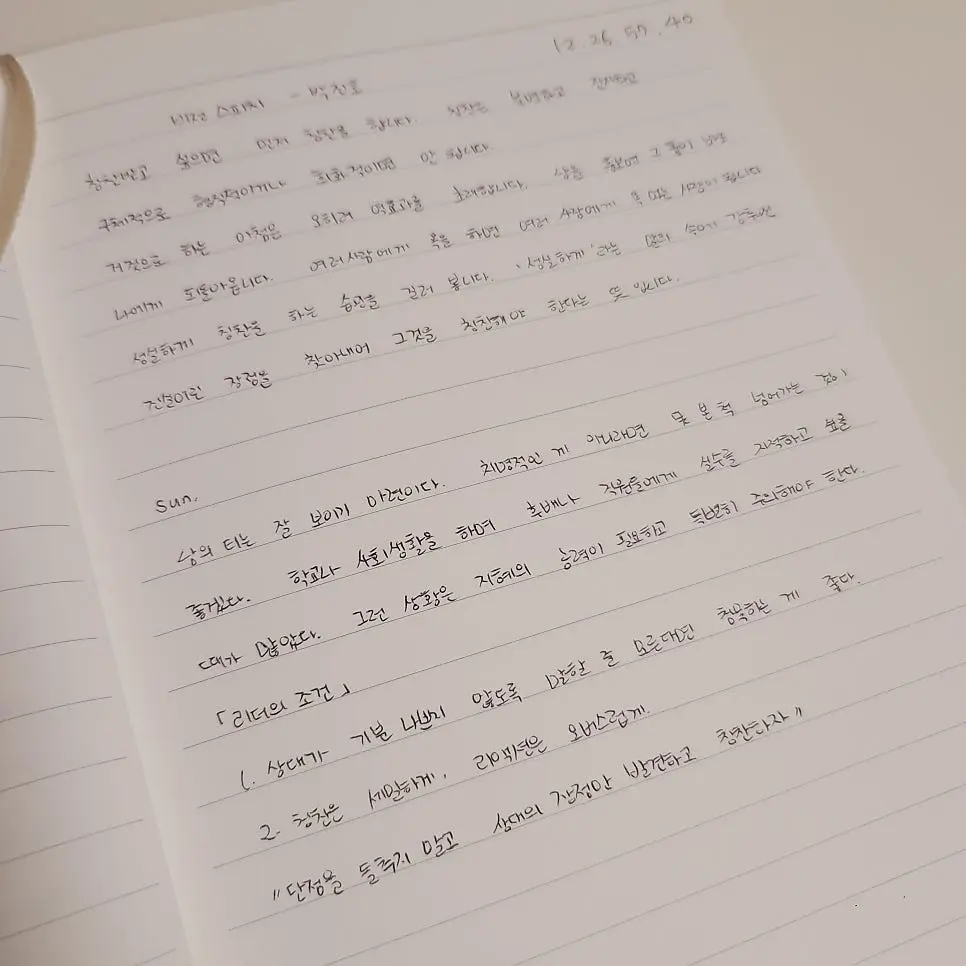 12. 26. 57. 40
비전 스피치 - 박진호
칭찬받고 싶으면 먼저 칭찬을 합니다. 칭찬은 분명하고 진지하고
구체적으로 형식적이거나 회화적이면 안 됩니다.
거짓으로 하는 아첨은 오히려 역효과를 초래합니다. 상을 좋은
나에게 되돌아옵니다. 여러사람에게 복을 하면 여러 사람에게 사람이 됩니다
성실하게 칭찬을 하는 습관을 길러 봅니다. '성실하게'라는 말의 속에 감추어
진 장점을 찾아내어 그것을 칭찬해야 한다는 뜻 입니다.
sun.
남의 티는 잘 보이기 마련이다. 치명적인 게 아니라면 못 본 척 넘어가는 것이
좋겠다. 학교나 사회생활을 하며 후배나 직원들에게 실수를 지적하고 싶을
때가 많았다. 그런 상황은 지혜의 능력이 필요하고 특별히 주의해야 한다.
「리더의 조건」
1. 상대가 기분 나쁘지 않도록 말할 줄 모른다면 침묵하는 게 좋다.
2. 칭찬은 세밀하게, 리액션은 오버스럽게.
"단점을 들추지 말고 상대의 장점만 발견하고 칭찬하자"